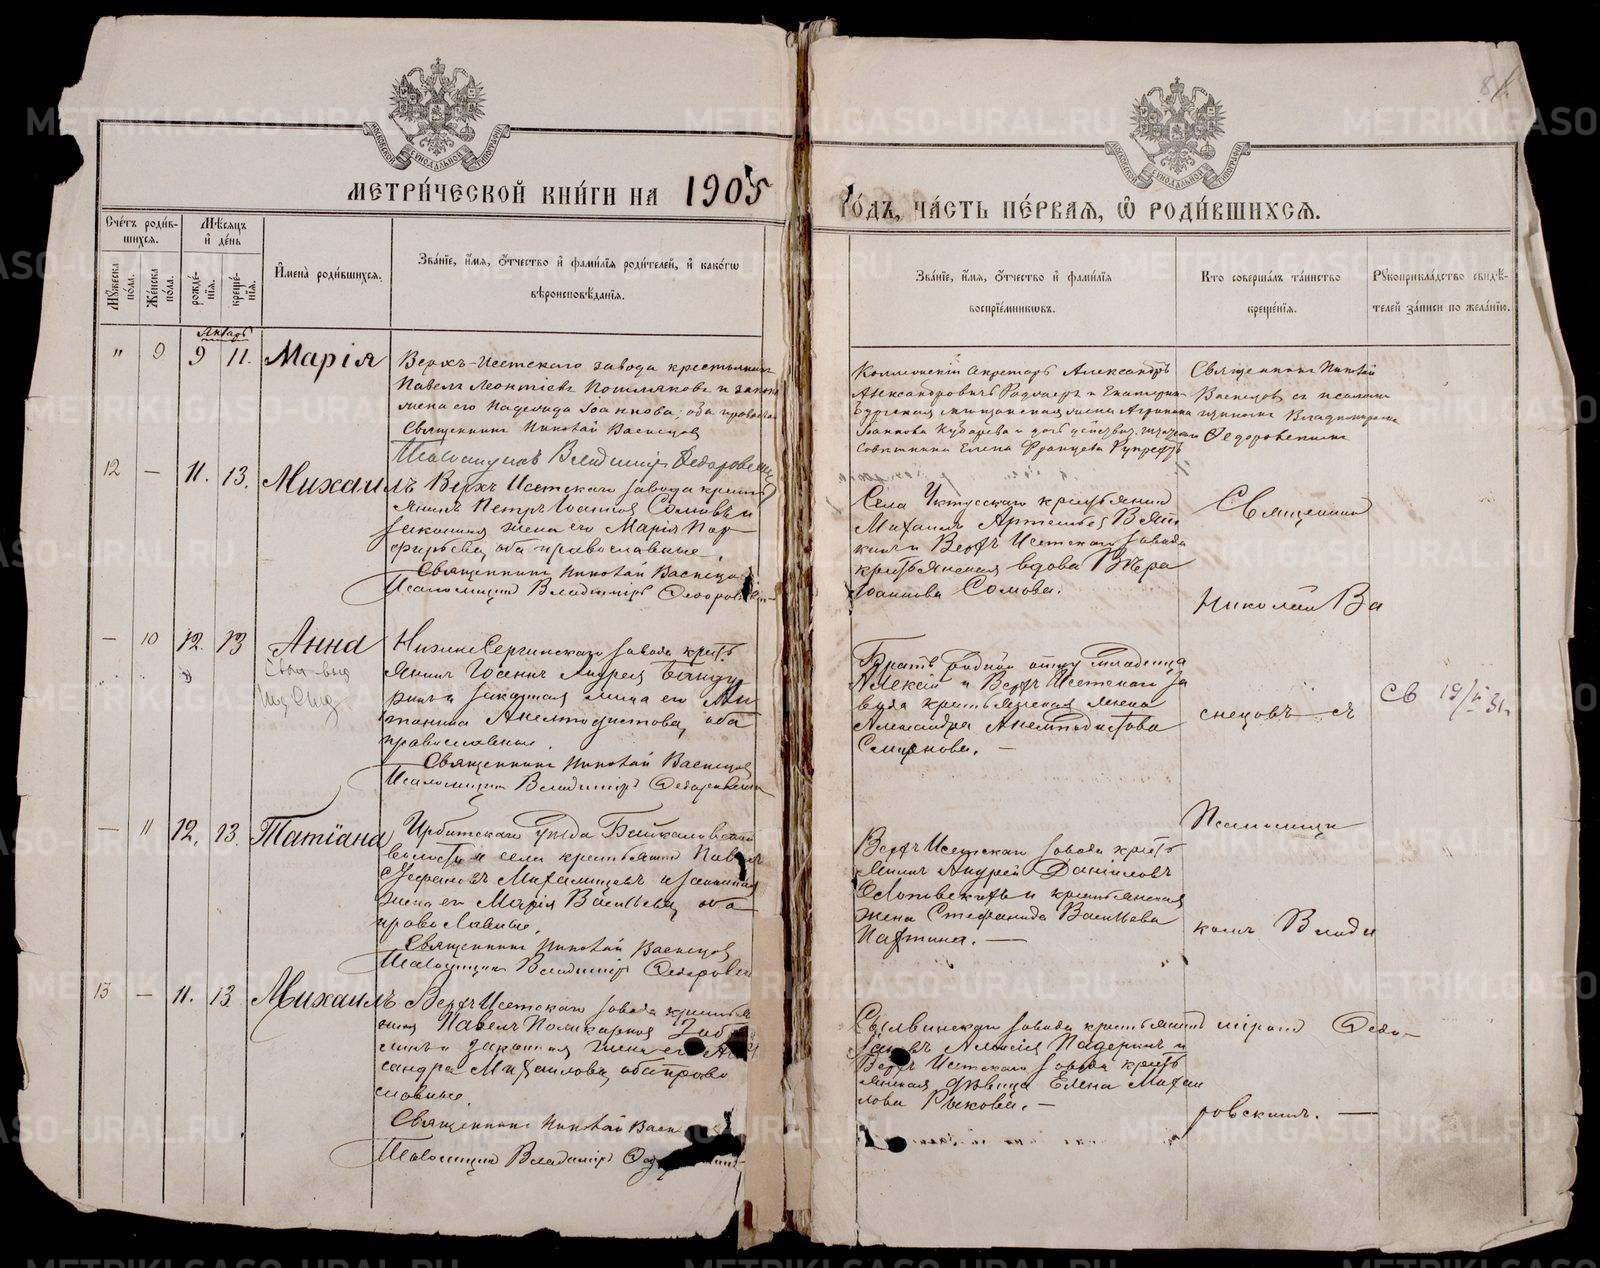 МЕТРИ́ЧЕСКОЙ КНИ́ГИ НА 1905
ГО́ДЪ, ЧА́СТЬ ПЕ́РВАЯ, Ѡ РОДИ́ВШИХСЯ.
МОСКОВСКОЙ СѴНОДАЛЬНОЙ ТИПОГРАФІИ
МОСКОВСКОЙ СѴНОДАЛЬНОЙ ТИПОГРАФІИ
Сче́тъ роди́в-
шихся.
Мѣсяцъ
и҆ де́нь
Мꙋ́жеска
по́ла.
Же́нска
по́ла.
рожде́-
нїя.
креще́-
нїя.
И҆мена̀ роди́вшихся.
Зва́нїе, и҆́мя, ѻ҆́тчество и҆ фами́лїя роди́телей, и҆ како́гѡ
вѣроисповѣ́данїя.
Зва́нїе, и҆́мя, ѻ҆́тчество и҆ фами́лїя
воспрїе́мникѡвъ.
Кто соверша́лъ та́инство
креще́нїя.
Рꙋкоприкла́дство свидѣ́-
телей за́писи по жела́нїю.
Январь
" 9 9 11. Марія
Верхъ-Исетскаго завода крестьянинъ
Павелъ Леонтіевъ и закон
жена его Надежда Іоаннова; оба православ
Священникъ Николай Васнецовъ
Псаломщикъ Владиміръ Федоровскій
Коллежскій Секретарь Александръ
Александровичъ и Екатерин-
бургская мещанская жена Агрипина
Іоаннова и дочь
Совѣтника Елена Францева
Священникъ Николай
Васнецовъ съ псалом
щикомъ Владиміромъ
Федоровскимъ
12 — 11. 13. Михаилъ
Верхъ Исетскаго завода кресть
янинъ Петръ Іоанновъ Сомовъ и
законная жена его Марія Пор
фирьева, оба православные.
Священникъ Николай Васнецовъ
Псаломщикъ Владиміръ Федоровскій
Села Уктусскаго крестьянинъ
Михаилъ Артемьевъ Вят
кинъ и Верхъ Исетскаго завода
крестьянская вдова Вѣра
Іоаннова Сомова.
Священникъ
Николай Ва
— 10 12. 13 Анна
Нижне Сергинскаго завода крест
янинъ Іоаннъ Андреевъ
и законная жена его Ан
тонина Анемподистова, оба
православные.
Священникъ Николай Васнецовъ
Псаломщикъ Владиміръ Федоровскій
Братъ родной отцу младенца
Алексій и Верхъ Исетскаго за
вода крестьянская жена
Александра Анемподистова
Смирнова. —
снецовъ съ
св 19/II 31
— 11 12, 13. Татіана
Ирбитскаго уѣзда Байкаловской
волости и села крестьянинъ Павелъ
Стефановъ Михалицевъ и законная
жена его Марія Васильева, оба
православные.
Священникъ Николай Васнецовъ
Псаломщикъ Владиміръ Федоровскій
Верхъ Исетскаго завода кресть
янинъ Андрей Даниловъ
и крестьянская
жена Стефанида Васильева
Пахтина. —
Псаломщи
комъ Влади
13 — 11. 13 Михаилъ
Верхъ Исетскаго завода крестья
нинъ Павелъ Поликарповъ
и законная жена его Алек
сандра Михаилова, оба право
славные.
Священникъ Николай Васнецовъ
Псаломщикъ Владиміръ
Сылвинскаго завода крестьянинъ
Яковъ Алексіевъ Падеринъ и
Верхъ Исетскаго завода кресть
янская дѣвица Елена Михаи
лова Рыкова. —
міромъ Федо—
ровскимъ. —